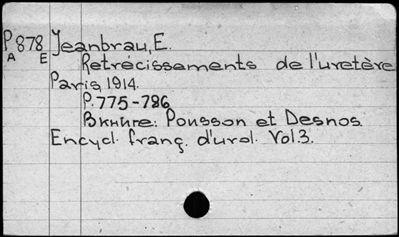 P878 Jeanbrau, E.
A E Retrécissements de l'uretère
Paris, 1914.
P. 775-786
В книге: Pousson et Desnos
Encycl. franç. d'urol. Vol. 3.